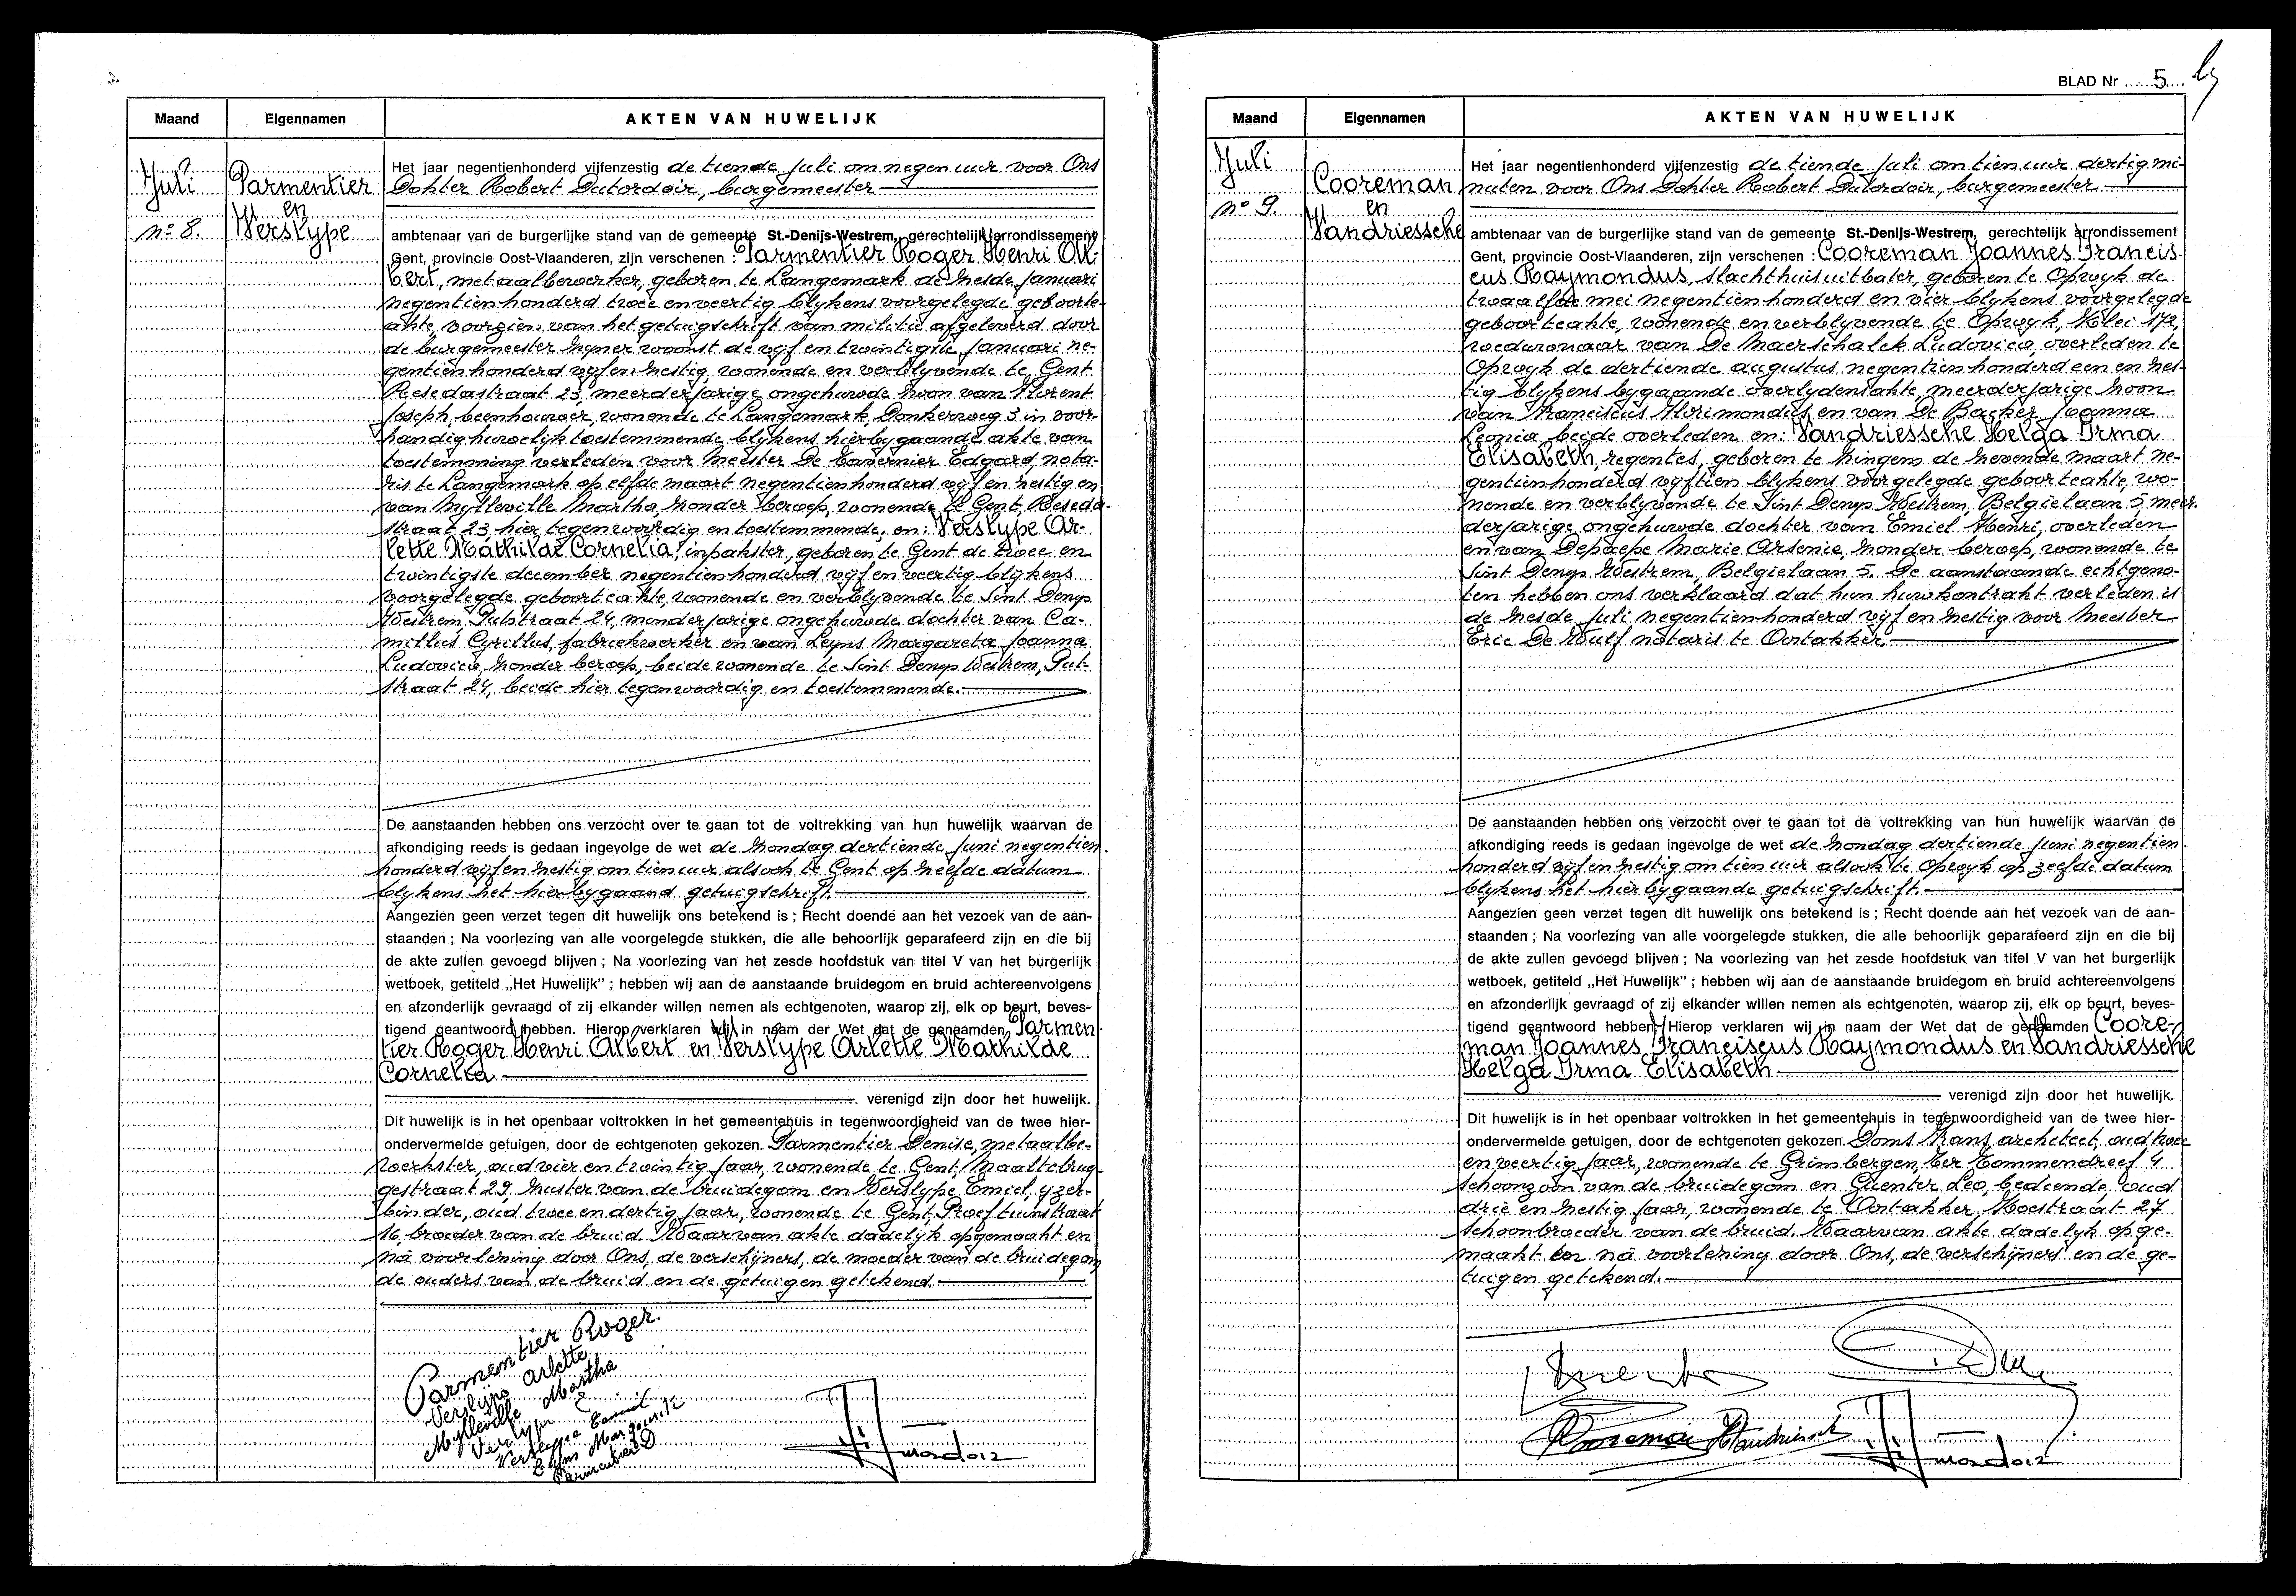 Maand
Eigennamen
AKTEN VAN HUWELIJK
Juli
Parmentier
en
Verslype
n° 8.
Het jaar negentienhonderd vijfenzestig de tiende Juli om negen uur voor Ons
Dokter Robert Dutordoir, burgemeester
ambtenaar van de burgerlijke stand van de gemeente St.-Denijs-Westrem, gerechtelijk arrondissement
Gent, provincie Oost-Vlaanderen, zijn verschenen : Parmentier Roger Henri Al-
bert, metaalbewerker, geboren te Langemark de zesde Januari
negentienhonderd twee en veertig blijkens voorgelegde geboorte-
akte, voorzien van het getuigschrift van militie afgeleverd door
de burgemeester zijner woonst de vijf en twintigste Januari ne-
gentienhonderd vijf en zestig, wonende en verblijvende te Gent
Resedastraat 23, meerderjarige ongehuwde zoon van Florent
Joseph, beenhouwer, wonende te Langemark Donkerweg 3 in voor-
handig huwelijk toestemmende blijkens hierbijgaande akte van
toestemming verleden voor Meester De Tavernier Edgard, nota-
ris te Langemark op elfde maart negentienhonderd vijf en zestig en
van Mylleville Martha, zonder beroep, wonende te Gent, Reseda-
straat 23 hier tegenwoordig en toestemmende, en: Verslype Ar-
lette Mathilde Cornelia, inpakster, geboren te Gent de twee en
twintigste december negentienhonderd vijf en veertig blijkens
voorgelegde geboorteakte, wonende en verblijvende te Sint Denys
Westrem, Putstraat 24, minderjarige ongehuwde dochter van Ca-
millus Cyrillus, fabriekwerker en van Leyns Margareta Joanna
Ludovica, zonder beroep, beide wonende te Sint Denys Westrem, Put-
straat 24, beide hier tegenwoordig en toestemmende.
De aanstaanden hebben ons verzocht over te gaan tot de voltrekking van hun huwelijk waarvan de
afkondiging reeds is gedaan ingevolge de wet de zondag dertiende Juni negentien
honderd vijf en zestig om tien uur alsook te Gent op zelfde datum
blijkens het hierbijgaand getuigschrift.
Aangezien geen verzet tegen dit huwelijk ons betekend is ; Recht doende aan het vezoek van de aan-
staanden ; Na voorlezing van alle voorgelegde stukken, die alle behoorlijk geparafeerd zijn en die bij
de akte zullen gevoegd blijven ; Na voorlezing van het zesde hoofdstuk van titel V van het burgerlijk
wetboek, getiteld „Het Huwelijk" ; hebben wij aan de aanstaande bruidegom en bruid achtereenvolgens
en afzonderlijk gevraagd of zij elkander willen nemen als echtgenoten, waarop zij, elk op beurt, beves-
tigend geantwoord hebben. Hierop verklaren wij in naam der Wet dat de genaamden Parmen-
tier Roger Henri Albert en Verslype Arlette Mathilde
Cornelia
verenigd zijn door het huwelijk.
Dit huwelijk is in het openbaar voltrokken in het gemeentehuis in tegenwoordigheid van de twee hier-
ondervermelde getuigen, door de echtgenoten gekozen. Parmentier Denise, metaalbe-
werkster, oud vier en twintig jaar, wonende te Gent, Maaltebrug-
gestraat 29, zuster van de bruidegom en Verslype Emiel, yzer-
binder, oud twee en dertig jaar, wonende te Gent, Proeftuinstraat
16, broeder van de bruid. Waarvan akte dadelijk opgemaakt en
na voorlezing door Ons, de verschijners, de moeder van de bruidegom
de ouders van de bruid en de getuigen getekend.
Parmentier Roger.
Verslype Arlette
Mylleville Martha
Verslype E
Verslype Emiel
Leyns Margareta
Parmentier D
BLAD Nr 5
Maand
Eigennamen
AKTEN VAN HUWELIJK
Juli
n° 9.
Cooreman
en
Vandriessche
Het jaar negentienhonderd vijfenzestig de tiende Juli om tien uur dertig mi-
nuten voor Ons Dokter Robert Dutordoir, burgemeester
ambtenaar van de burgerlijke stand van de gemeente St.-Denijs-Westrem, gerechtelijk arrondissement
Gent, provincie Oost-Vlaanderen, zijn verschenen : Cooreman Joannes Francis-
cus Raymondus, slachthuisuitbater, geboren te Opwyk de
twaalfde mei negentienhonderd en vier blijkens voorgelegde
geboorteakte, wonende en verblijvende te Opwyk, Klei 172,
weduwnaar van De Maerschalck Ludovica, overleden te
Opwyk de dertiende augustus negentienhonderd een en zes-
tig blijkens bygaande overlydensakte, meerderjarige zoon
van Franciscus Florimondus en van De Backer Joanna
Leonia, beide overleden en: Vandriessche Helga Irma
Elisabeth, regentes, geboren te Zingem de zevende maart ne-
gentienhonderd vijftien blijkens voorgelegde geboorteakte, wo-
nende en verblijvende te Sint Denys Westrem, Belgielaan 5, meer-
derjarige ongehuwde dochter van Emiel Henri, overleden
en van Depaepe Marie Arsenie, zonder beroep, wonende te
Sint Denys Westrem, Belgielaan 5. De aanstaande echtgeno-
ten hebben ons verklaard dat hun huwkontrakt verleden is
de zesde Juli negentienhonderd vijf en zestig voor Meester
Eric De Wulf notaris te Oostakker.
De aanstaanden hebben ons verzocht over te gaan tot de voltrekking van hun huwelijk waarvan de
afkondiging reeds is gedaan ingevolge de wet de zondag dertiende Juni negentien
honderd vijf en zestig om tien uur alsook te Opwyk op zelfde datum
blijkens het hierbijgaande getuigschrift.
Aangezien geen verzet tegen dit huwelijk ons betekend is ; Recht doende aan het vezoek van de aan-
staanden ; Na voorlezing van alle voorgelegde stukken, die alle behoorlijk geparafeerd zijn en die bij
de akte zullen gevoegd blijven ; Na voorlezing van het zesde hoofdstuk van titel V van het burgerlijk
wetboek, getiteld „Het Huwelijk" ; hebben wij aan de aanstaande bruidegom en bruid achtereenvolgens
en afzonderlijk gevraagd of zij elkander willen nemen als echtgenoten, waarop zij, elk op beurt, beves-
tigend geantwoord hebben. Hierop verklaren wij in naam der Wet dat de genaamden Coore-
man Joannes Franciscus Raymondus en Vandriessche
Helga Irma Elisabeth
verenigd zijn door het huwelijk.
Dit huwelijk is in het openbaar voltrokken in het gemeentehuis in tegenwoordigheid van de twee hier-
ondervermelde getuigen, door de echtgenoten gekozen. Doms Frans, architect, oud twee
en veertig jaar, wonende te Grimbergen, Ter Tommendreef 4
schoonzoon van de bruidegom en Guenter Leo, bediende, oud
drie en zestig jaar, wonende te Oostakker, Koestraat 27
schoonbroeder van de bruid. Waarvan akte dadelijk opge-
maakt en na voorlezing door Ons, de verschijners en de ge-
tuigen getekend.
Cooreman HVandriessche